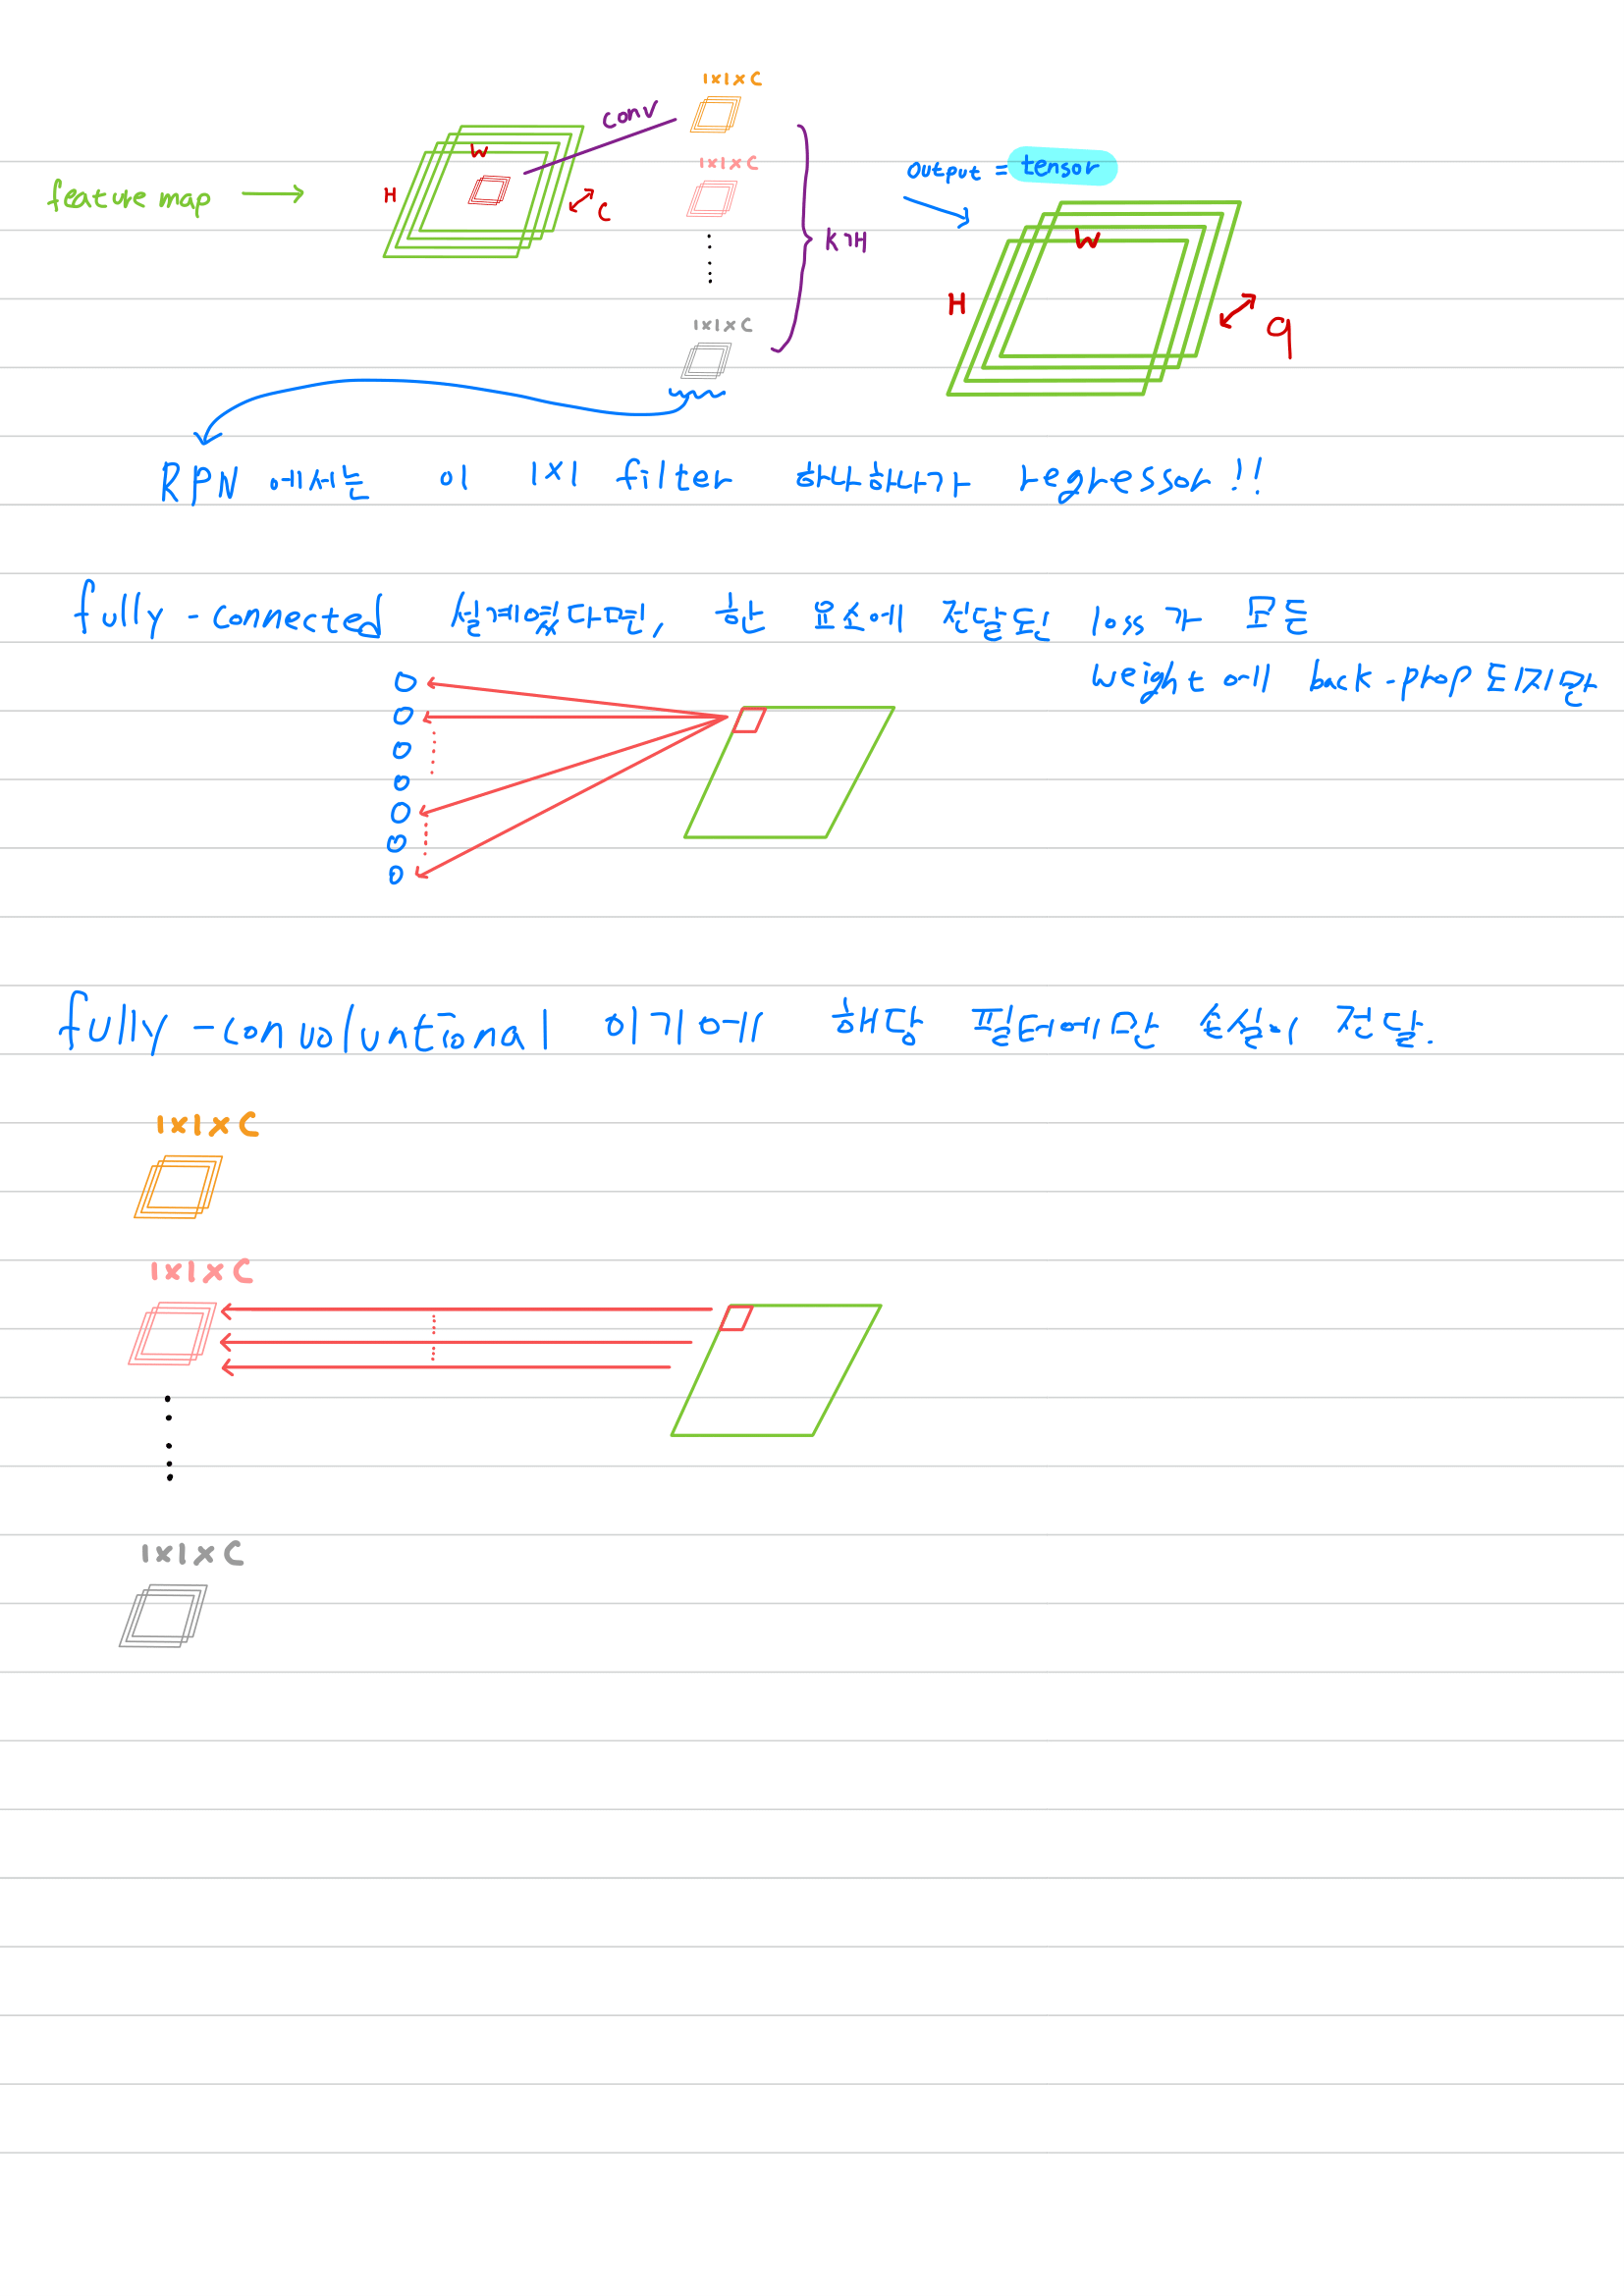 1x1xC
conv
1x1xC
W
H
C
feature map
K개
1x1xC
output = tensor
W
H
9
RPN 에서는 이 1x1 filter 하나하나가 regressor!!
fully-connected 설계였다면, 한 요소에 전달된 loss가 모든
weight에 back-prop 되지만
fully-convoluntional 이기에 해당 필터에만 손실이 전달.
1x1xC
1x1xC
1x1xC